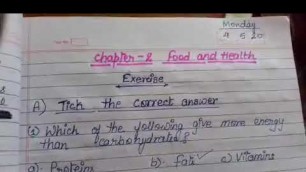 Monday
4 5 20
Chapter-2 Food and Health
Exercise
A) Tick the correct answer
(1) Which of the following give more energy
than carbohydrates?
a) Protein b) fats ✓ c) Vitamins